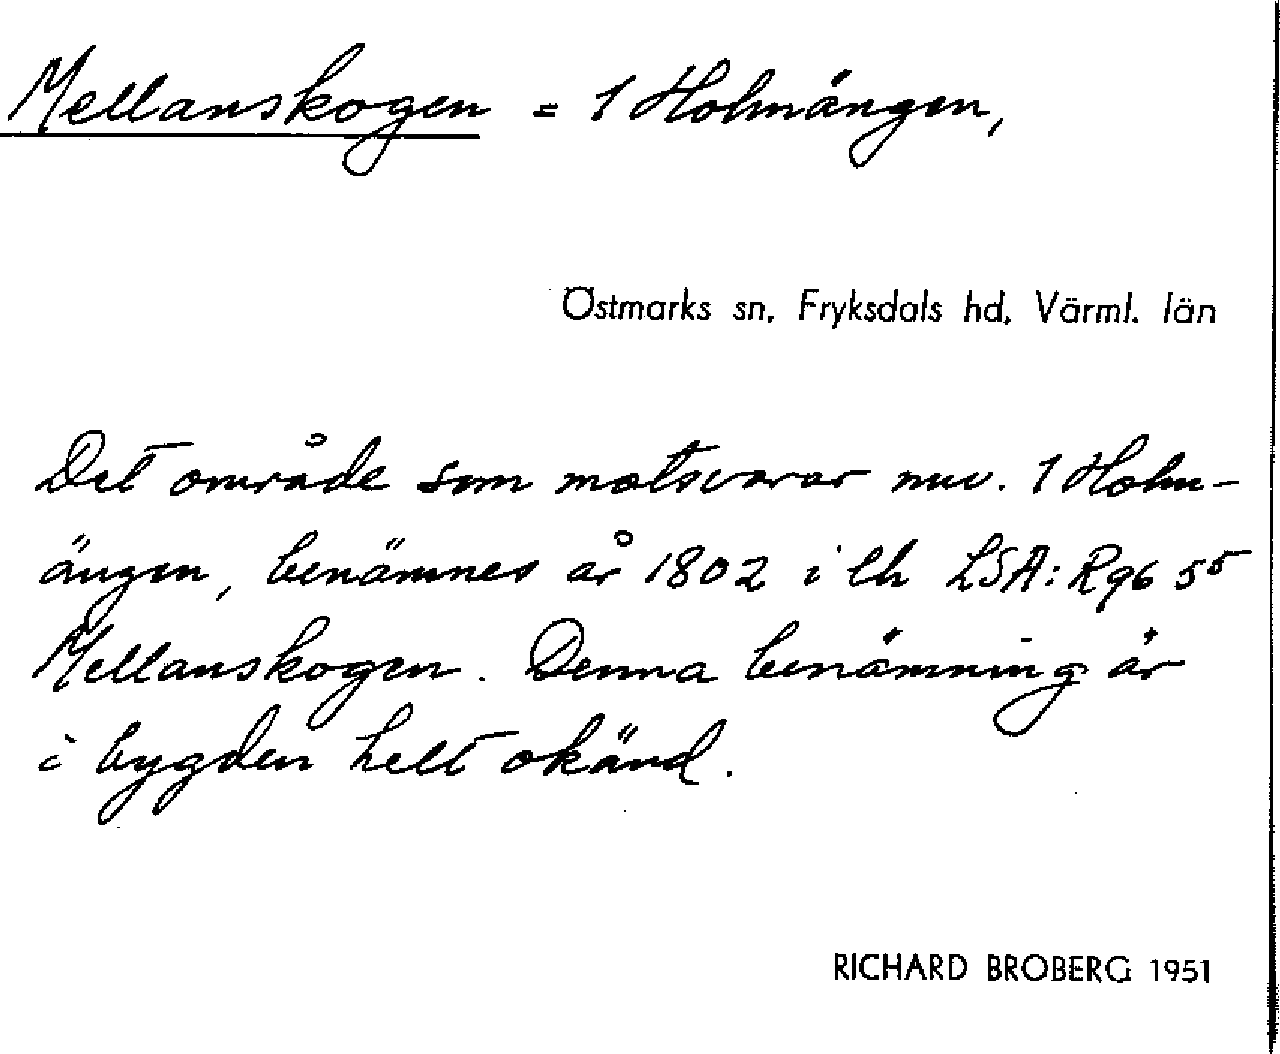 Mellanskogen = 1 Holmängen,
Östmarks sn, Fryksdals hd, Värml. län
Det område som motsvarar nuv. 1 Holm-
ängen, benämnes år 1802 i lh LSA: R96 55
Mellanskogen. Denna benämning är
i bygden helt okänd.
RICHARD BROBERG 1951